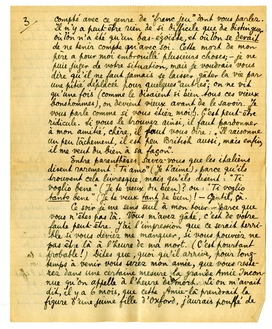 3
compté avec ce genre de "frame jeu" dont vous parlez.
Il n'y a peut être rien de si difficile que de distinguer
où l'on n'a été qu'un bas-égoïste, et où l'on se devait
de ne tenir compte qu'avec soi. Cette mort de mon
père a pour moi embrouillé plusieurs choses - je ne
puis juger de votre situation, mais je voudrais vous
dire qu'il ne faut jamais se laisser gâter la vie par
une pitié déplacée pour quelque autre; on ne vit
qu'une fois (comme le disaient si bien tous ces vieux
bonshommes), on devient vieux avant de le savoir. Je
vous parle comme si vous étiez moi. C'est peut-être
ridicule. Si vous le trouvez ainsi, il faut pardonner
à mon amitié, chère, il faut vous dire: "Il raisonne
un peu tristement, il est bon British aussi, mais enfin
il me veut du bien à sa façon".
Entre parenthèses, savez-vous que les italiens
disent rarement: "Ti amo" (Je t'aime), parce qu'ils
trouvent cela mais qu'ils disent: "Ti
voglio bene" (Je te veux du bien)? ou: "Ti voglio
tanto bene" (Je te veux tant de bien) - Gentil, ça.
Ce soir je me sens mal à mon tour - parce que
vous n'êtes pas là. Vous m'avez gâté, c'est de votre
faute peut-être. J'ai l'impression que ce serait terrible
si vous deviez me manquer, si vous pouviez ne
pas être là à l'heure de ma mort. (C'est pourtant
probable!) Dites que, quoi qu'il arrive, pour longtemps
à venir vous serez mon amie, que vous resterez
dans une certaine mesure la grande Amie Inconnue
qu'on appelle à l'heure de mort. Si on m'avait
dit, il y a 6 mois, que cette Amie-là prendrait la
figure d'une jeune fille d'Oxford, j'aurais pouffé de